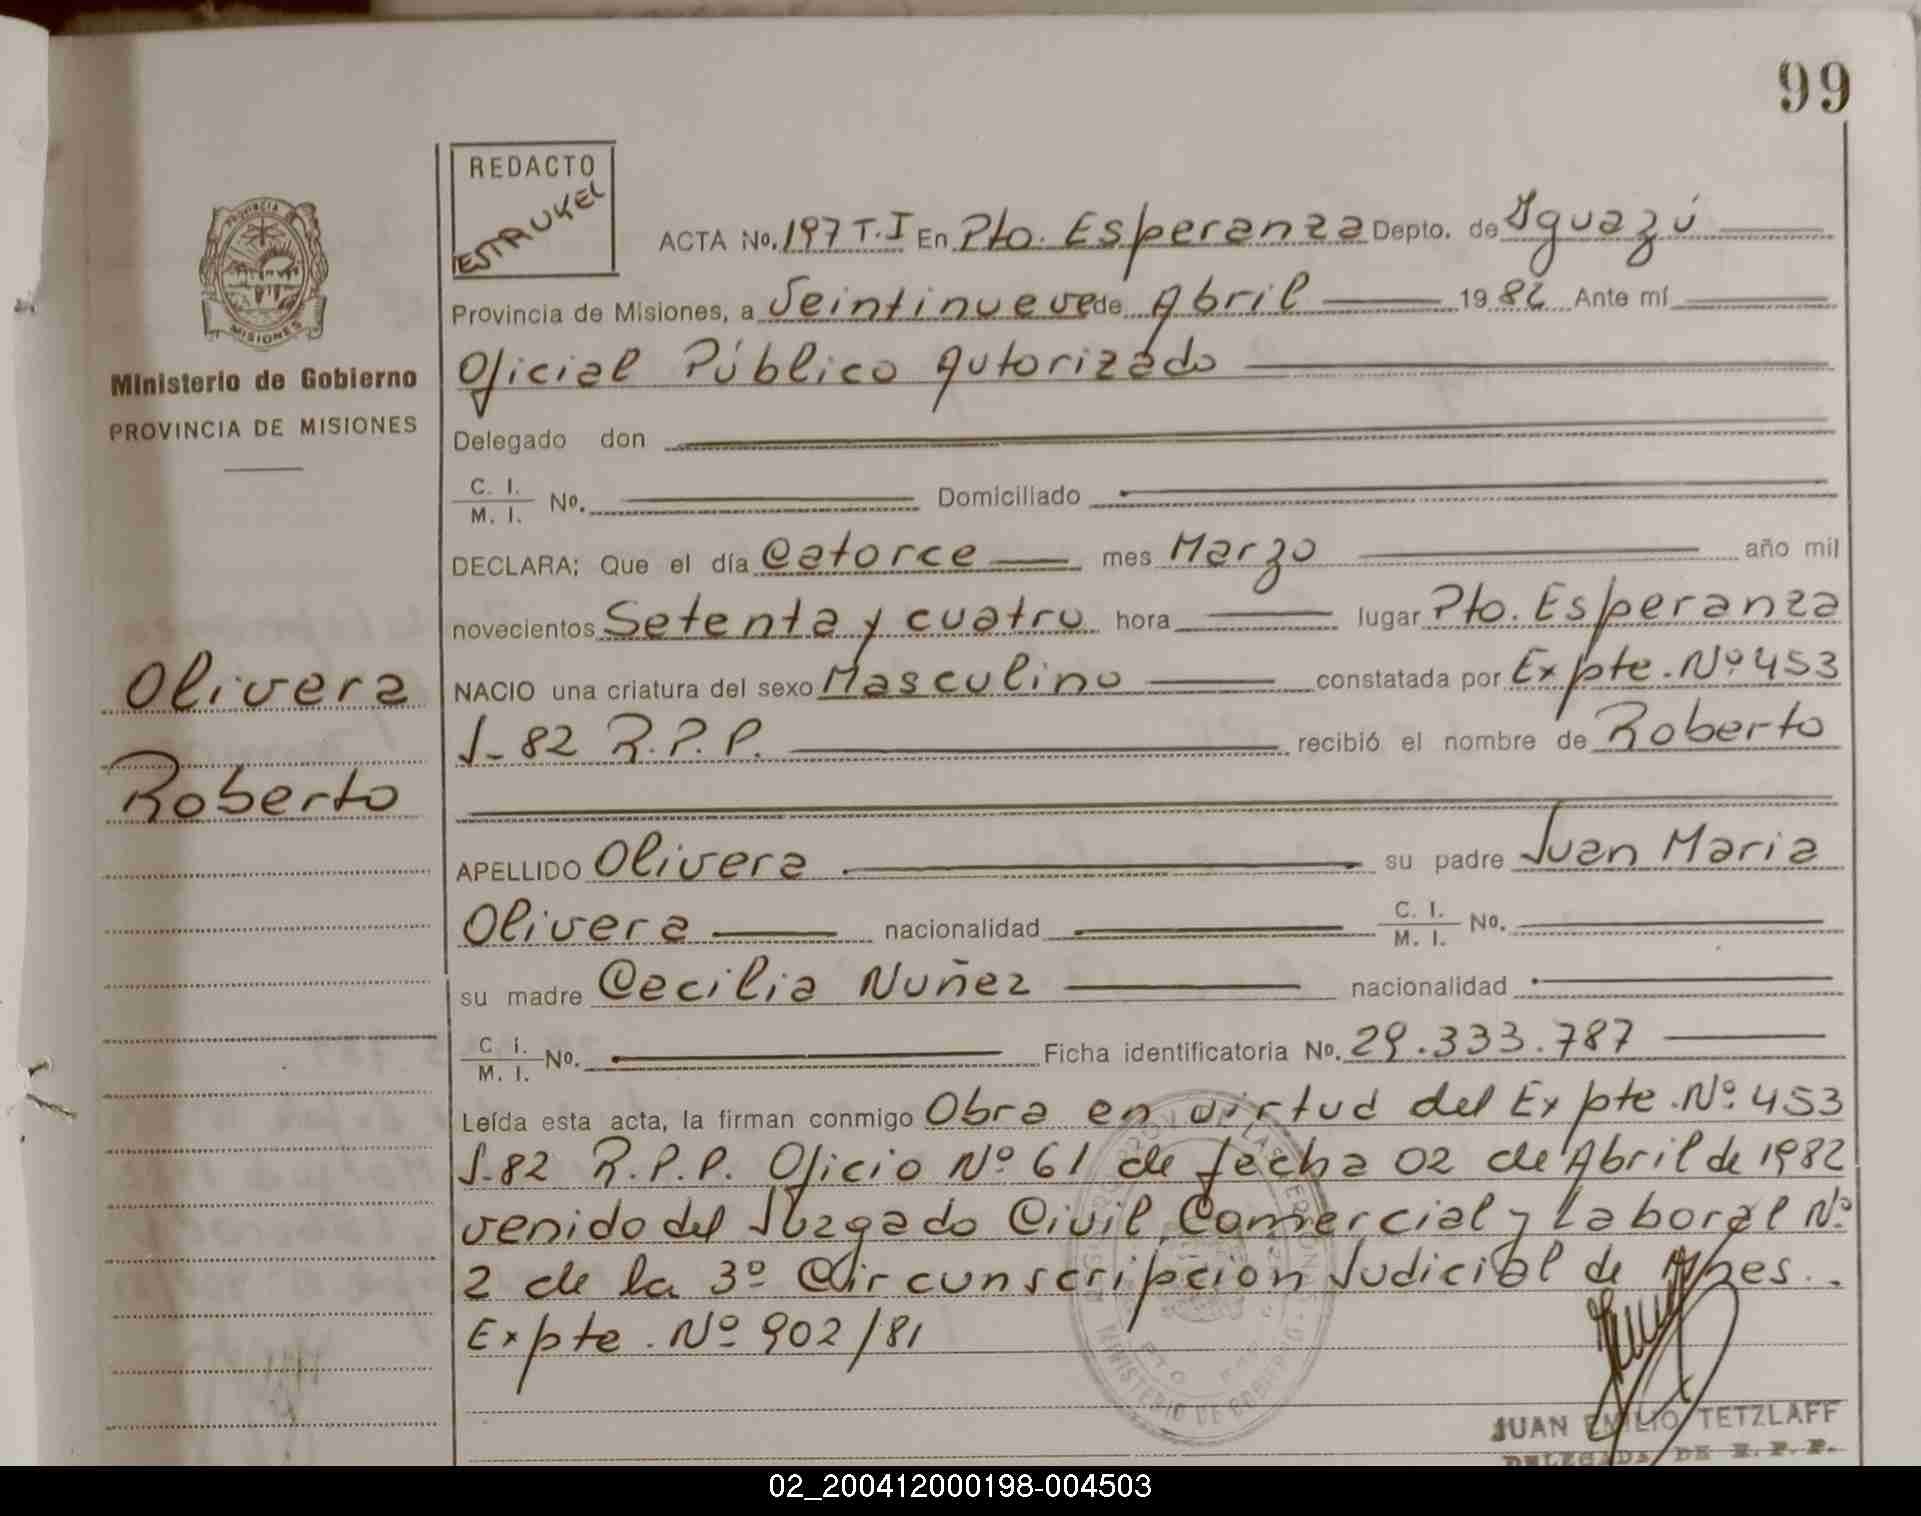 99
REDACTO
ESTRUKEL
PROVINCIA
MISIONES
Ministerio de Gobierno
PROVINCIA DE MISIONES
Olivera
Roberto
ACTA No. 197 T.I En Pto. Esperanza Depto. de Iguazú
Provincia de Misiones, a Veintinueve de Abril 1982 Ante mí
Oficial Público Autorizado
Delegado don
C. I. / M. I. No. Domiciliado
DECLARA; Que el día Catorce mes Marzo año mil
novecientos Setenta y cuatro hora lugar Pto. Esperanza
NACIO una criatura del sexo Masculino constatada por Expte. Nº 453
J-82 R.P.P. recibió el nombre de Roberto
APELLIDO Olivera su padre Juan Maria
Olivera nacionalidad C. I. / M. I. No.
su madre Cecilia Nuñez nacionalidad
C. I. / M. I. No. Ficha identificatoria No. 29.333.787
Leída esta acta, la firman conmigo Obra en virtud del Expte. Nº 453
J-82 R.P.P. Oficio Nº 61 de fecha 02 de Abril de 1982
venido del Juzgado Civil, Comercial y Laboral Nº
2 de la 3º Circunscripcion Judicial de Mnes..
Expte. Nº 902/81
MINISTERIO DE GOBIERNO
JUAN EMILIO TETZLAFF
DELEGADA DE R. P. P.
02_200412000198-004503